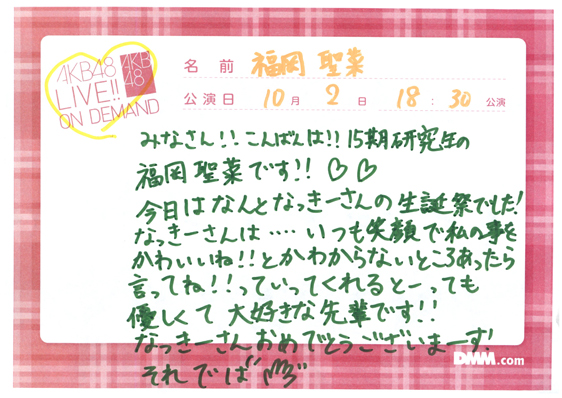 AKB48
LIVE!!
ON DEMAND
AKB
48
名前 福岡 聖菜
公演日 10月 2日 18:30公演
みなさん!!こんばんは!!15期研究生の
福岡聖菜です!!♡♡
今日はなんとなっきーさんの生誕祭でした!
なっきーさんは‥‥いつも笑顔で私の事を
かわいいね!!とかわからないところあったら
言ってね!!っていってくれるとーっても
優しくて大好きな先輩です!!
なっきーさんおめでとうございまーす!
それでは"
DMM.com